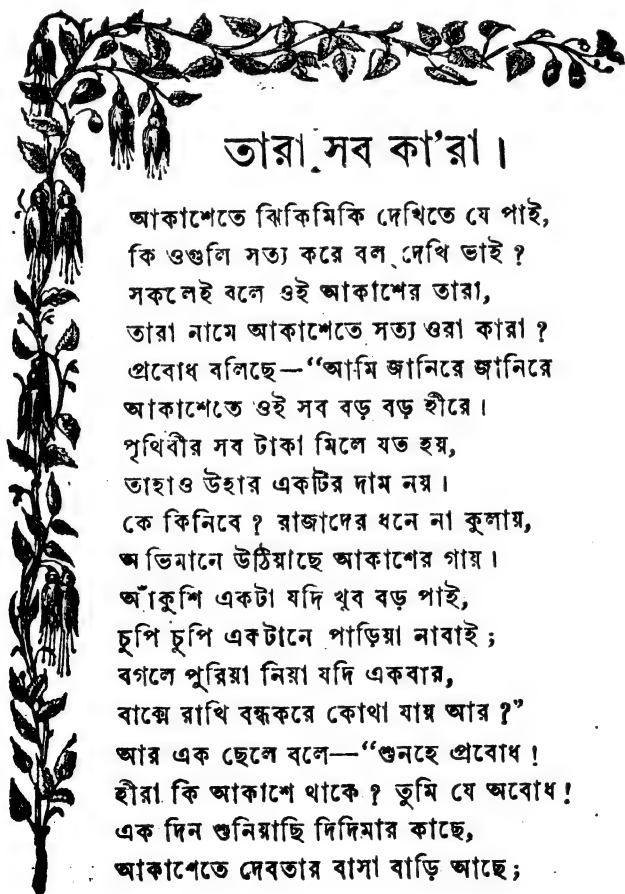 তারা সব কা'রা।
আকাশেতে ঝিকিমিকি দেখিতে যে পাই,
কি ওগুলি সত্য করে বল দেখি ভাই ?
সকলেই বলে ওই আকাশের তারা,
তারা নামে আকাশেতে সত্য ওরা কারা ?
প্রবোধ বলিছে—“আমি জানিরে জানিরে
আকাশেতে ওই সব বড় বড় হীরে।
পৃথিবীর সব টাকা মিলে যত হয়,
তাহাও উহার একটির দাম নয়।
কে কিনিবে ? রাজাদের ধনে না কুলায়,
অভিমানে উঠিয়াছে আকাশের গায়।
আঁকুশি একটা যদি খুব বড় পাই,
চুপি চুপি একটানে পাড়িয়া নাবাই ;
বগলে পুরিয়া নিয়া যদি একবার,
বাক্সে রাখি বন্ধকরে কোথা যায় আর ?”
আর এক ছেলে বলে—“শুনহে প্রবোধ !
হীরা কি আকাশে থাকে ? তুমি যে অবোধ !
এক দিন শুনিয়াছি দিদিমার কাছে,
আকাশেতে দেবতার বাসা বাড়ি আছে ;